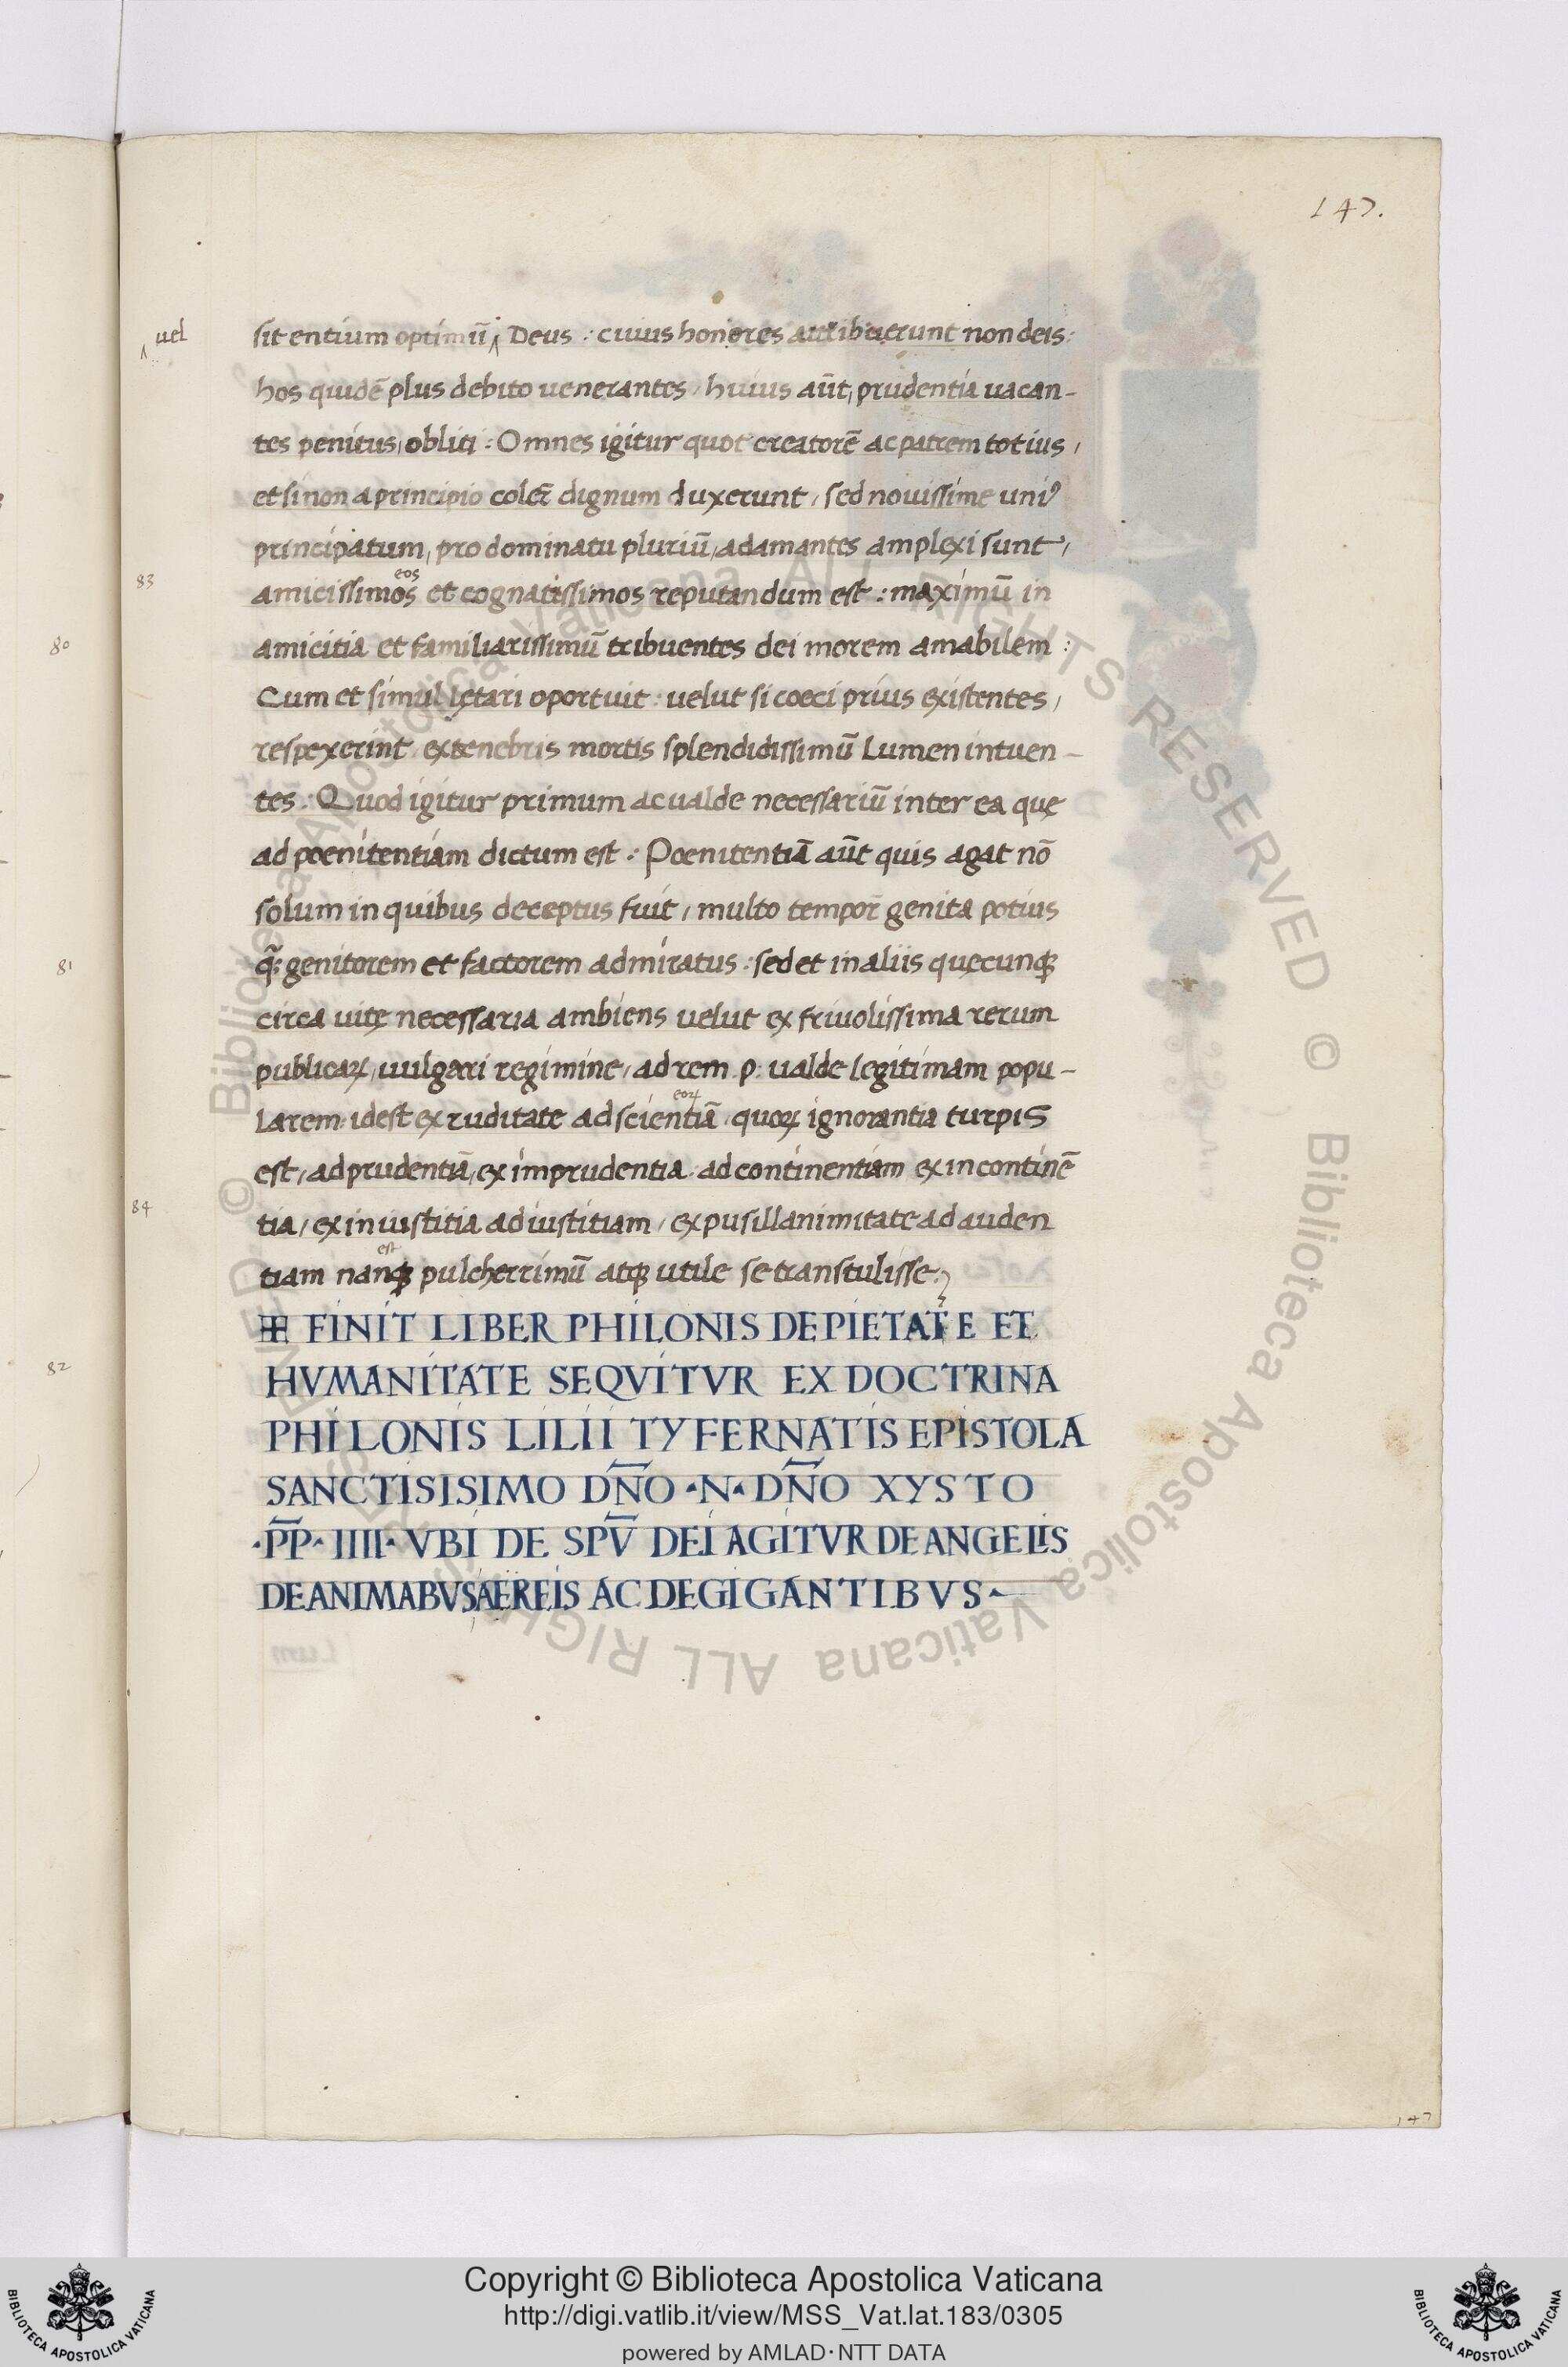 147.
uel
sit entium optimū Deus : cuius honores attribuerunt non deis :
hos quidē plus debito uenerantes , huius aūt, prudentia uacan-
tes penitus, obliti : Omnes igitur quot creatorē ac patrem totius,
et si non a principio colerē dignum duxerunt, sed nouissime uniꝰ
principatum, pro dominatu pluriū, adamantes amplexi sunt,
83
eos
amicissimos et cognatissimos reputandum est : maximū in
80
amicitia et familiarissimū tribuentes dei morem amabilem :
Cum et simul lętari oportuit : uelut si coeci prius existentes,
respexerint, ex tenebris mortis splendidissimū Lumen intuen-
tes : Quod igitur primum ac ualde necessariū inter ea quę
ad poenitentiam dictum est : Poenitentiā aūt quis agat nō
solum in quibus deceptus fuit, multo tempor̄ genita potius
81
q̃ genitorem et factorem admiratus : sed et in aliis quęcunqꝫ
circa uitę necessaria ambiens uelut ex friuolissima rerum
publicaꝝ, uulgari regimine, ad rem .p. ualde legitimam popu-
eoꝝ
larem : idest ex ruditate ad scientiā quoꝝ ignorantia turpis
est, ad prudentiā, ex imprudentia ad continentiam ex incontinē
84
tia, ex iniustitia ad iustitiam, ex pusillanimitate ad auden
est
tiam nanqꝫ pulcherrimū atqꝫ utile se transtulisse :
82
FINIT LIBER PHILONIS DE PIETATE ET
HVMANITATE SEQVITVR EX DOCTRINA
PHILONIS LILII TYFERNATIS EPISTOLA
SANCTISISIMO DN̄O ·N· DN̄O XYSTO
·P̄P· IIII· VBI DE SPV̄ DEI AGITVR DE ANGELIS
DE ANIMABVS AËREIS AC DE GIGANTIBVS
147
© Biblioteca Apostolica Vaticana ALL RIGHTS RESERVED © Biblioteca Apostolica Vaticana ALL RIGHTS RESERVED
BIBLIOTECA APOSTOLICA VATICANA
Copyright © Biblioteca Apostolica Vaticana
http://digi.vatlib.it/view/MSS_Vat.lat.183/0305
powered by AMLAD·NTT DATA
BIBLIOTECA APOSTOLICA VATICANA